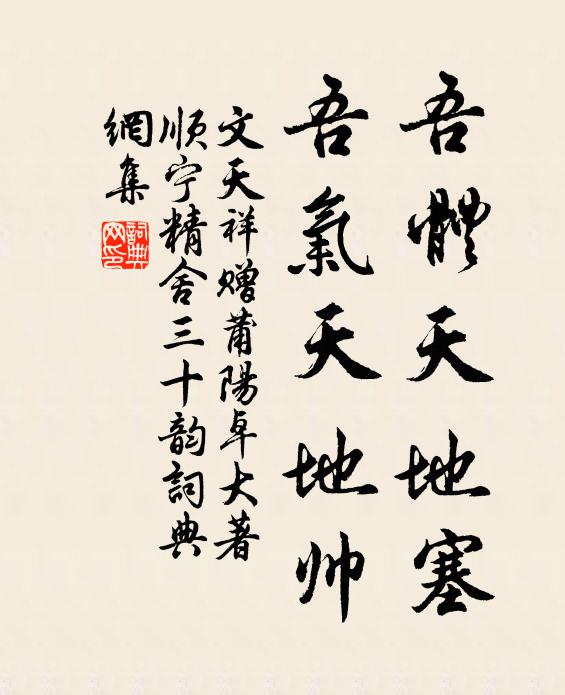 吾體天地塞
吾氣天地帅
文天祥赠莆陽卓大著
順宁精舍三十韵詞典
網集
詞典网印